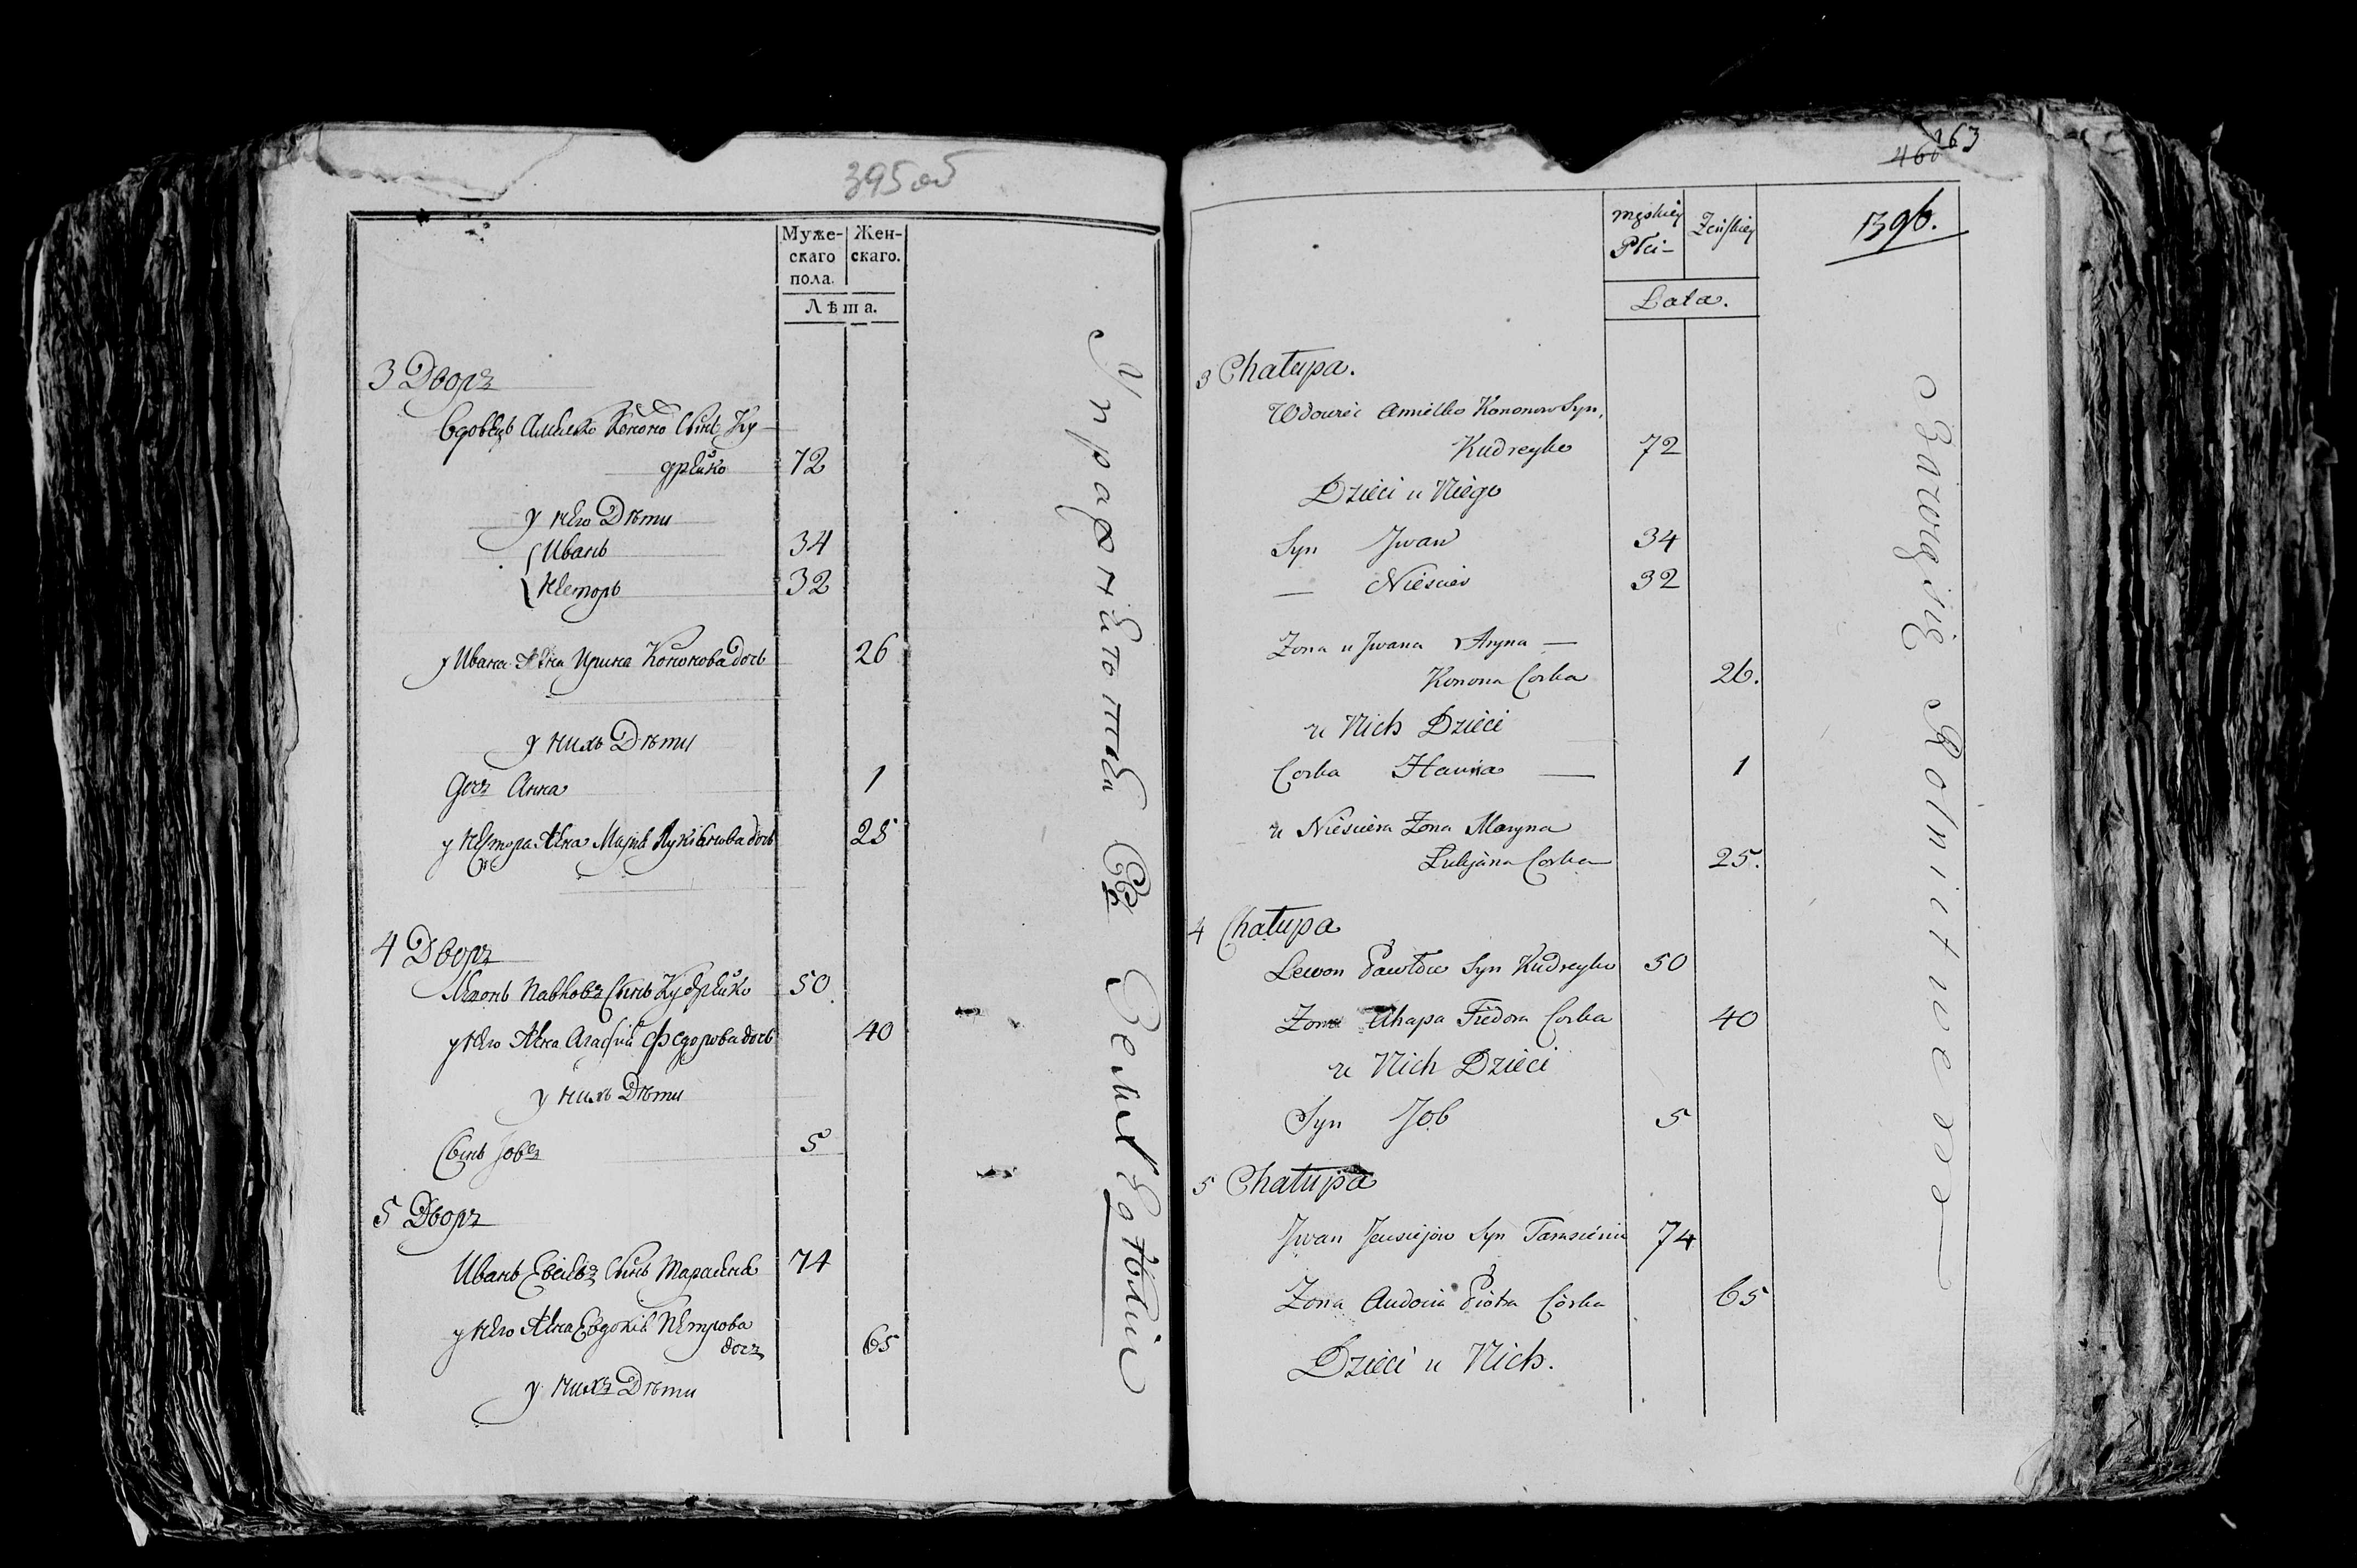 395 об
Муже-
скаго
пола.
Жен-
скаго.
Лѣта.
3 Дворъ
Вдовецъ Амилько Кононо Сынъ Ку-
дрейко 72
у Него Дѣти
Иванъ 34
Несторъ 32
у Ивана жена Ирина Кононова дочь 26
у нихъ Дѣти
дочь Анна 1
у Нестора жена Марья Лукіянова дочь 25
4 Дворъ
Павловъ Сынъ Кудрейко 50
у Него жена Агафия Федорова дочь 40
у нихъ Дѣти
Сынъ Іовъ 5
5 Дворъ
Иванъ Сынъ 74
у Него жена Евдокия Петрова
дочь 65
у нихъ Дѣти
163
1396.
męskiey
Płci
Żeńskiey
Lata.
3 Chałupa.
Wdowiec Amielko Kononow Syn,
Kudreyko 72
Dzieci u Niego
Syn Jwan 34
— Niescier 32
Zona u Jwana Aryna —
Konona Corka 26.
u Nich Dzieci
Corka Hanna — 1
u Niesciera Zona Maryna
Lukjana Corka 25.
4 Chałupa
Lewon Pawłow Syn Kudreyko 50
Zona Ahapa Fiedora Corka 40
u Nich Dzieci
Syn Job 5
5 Chałupa
Jwan Syn 74
Zona Audocia Piotra Córka 65
Dzieci u Nich.